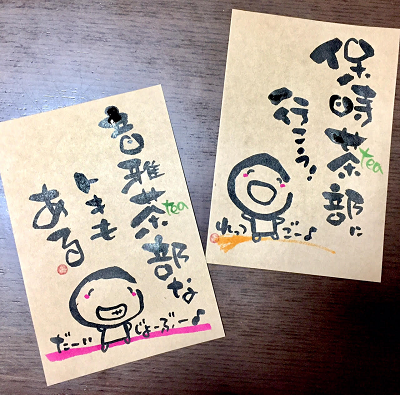 音雅茶部な
tea
ときも
ある
だーい じょーぶー♪
保時茶部に
tea
行こう!
れっつ ごー♪